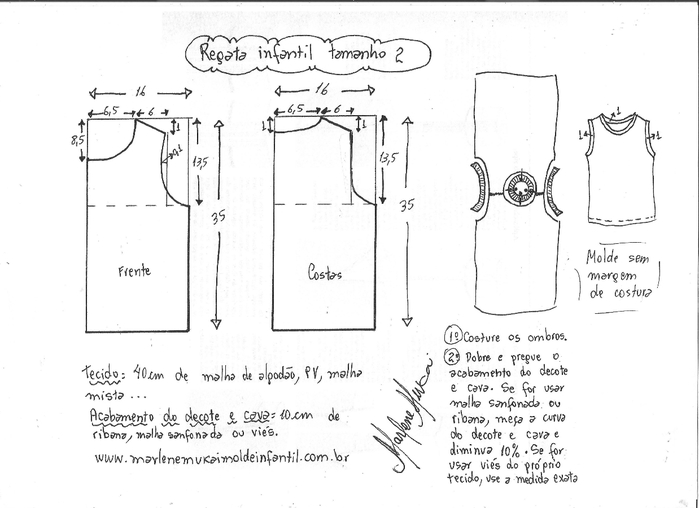 Regata infantil tamanho 2
16
6,5 6
8,5
1
1
13,5
35
Frente
16
6,5 6
1
1
13,5
35
Costas
1
1
1
Molde sem
margem
de costura
Tecido: 40 cm de malha de algodão, PV, malha
mista ...
Acabamento do decote e cava = 10 cm de
ribana, malha sanfonada ou viés.
www.marlenemukaimoldeinfantil.com.br
Marlene Mukai
1º Costure os ombros.
2º Dobre e pregue o
acabamento do decote
e cava. Se for usar
malha sanfonada ou
ribana, meça a curva
do decote e cava e
diminua 10%. Se for
usar viés do próprio
tecido, use a medida exata